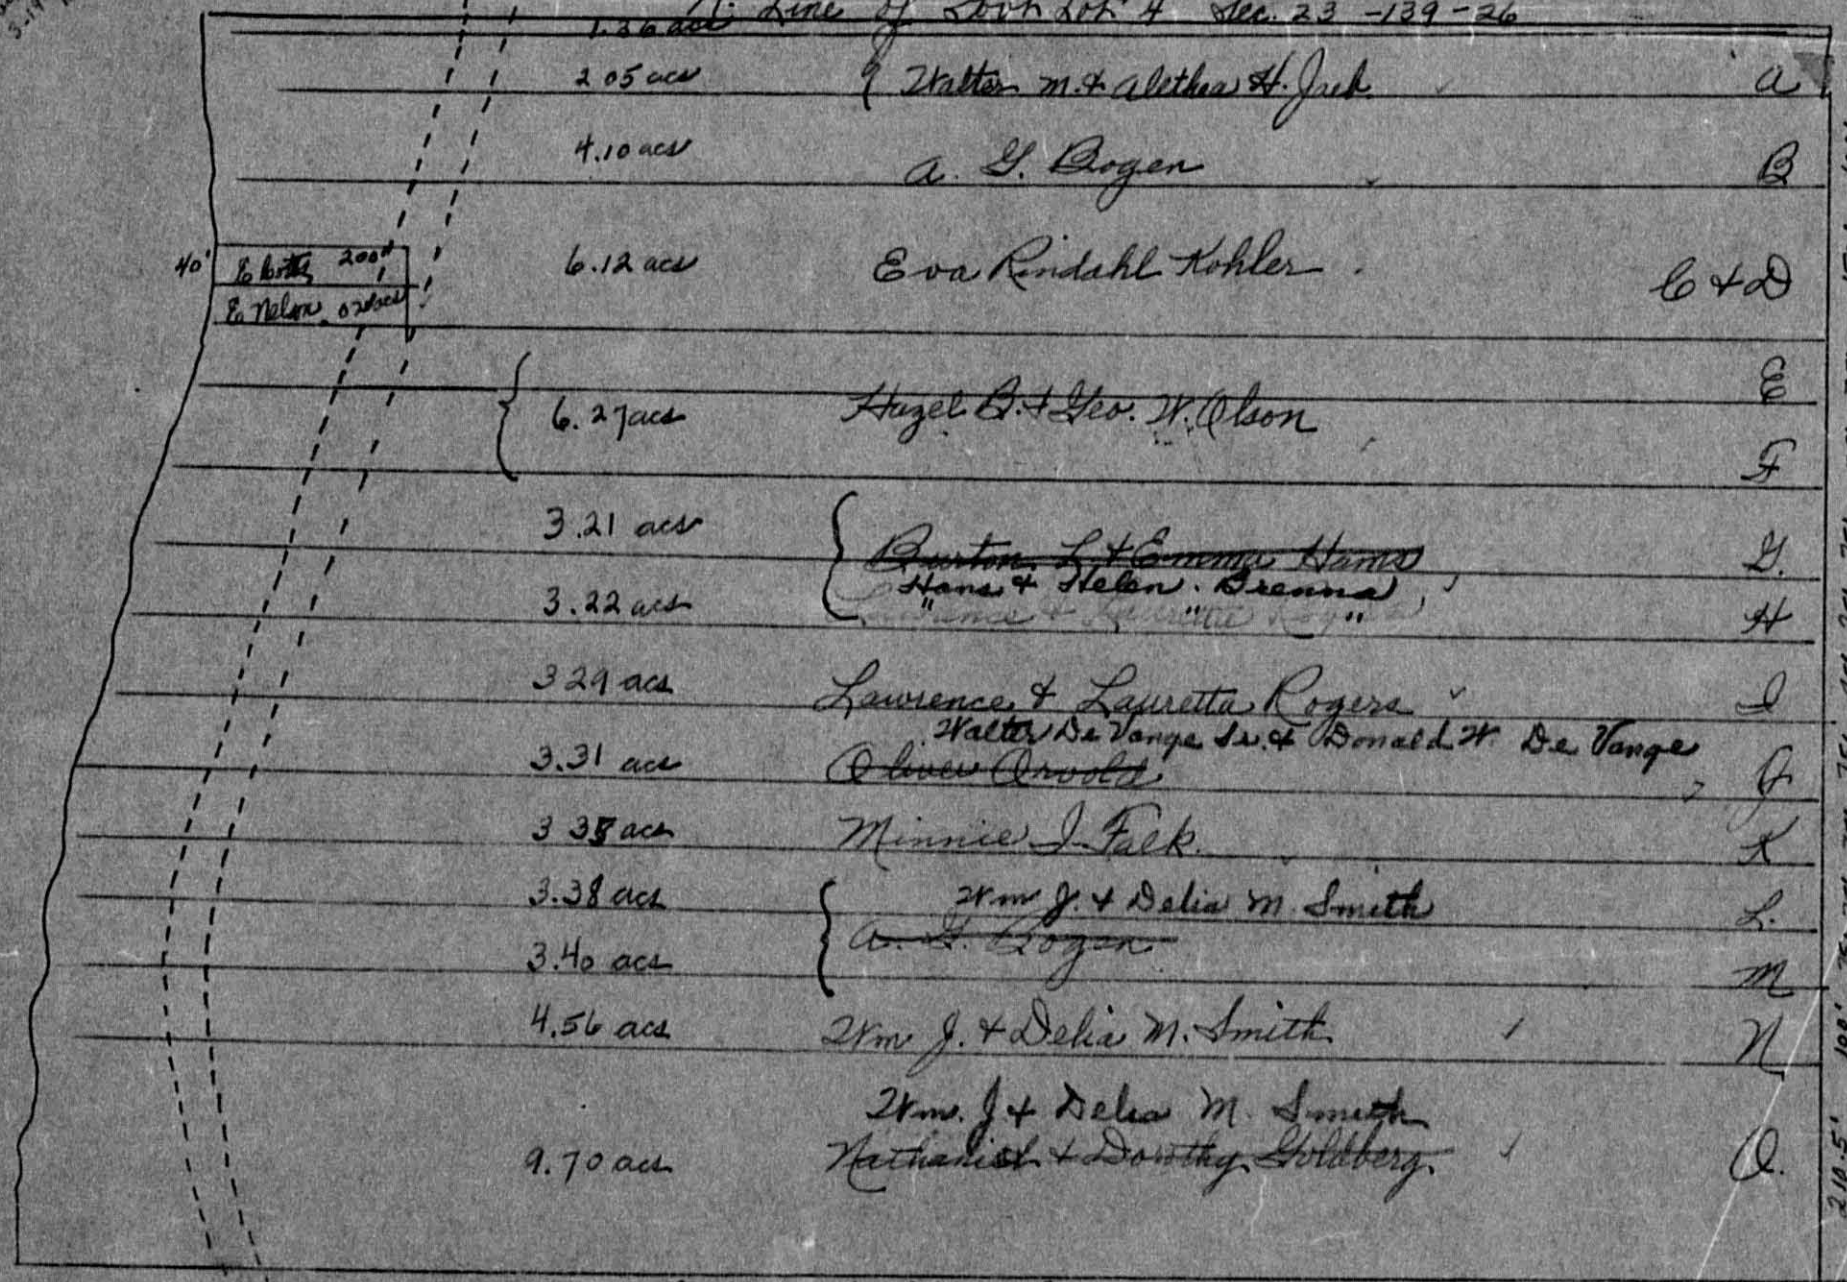 N. Line of Govt Lot 4 Sec. 23 -139-26
1.36 acs
2.05 acs Walter M. & Alethea H. A
4.10 acs A. G. Bogen B
40' 200' 6.12 acs Eva Rindahl Kohler C & D
E. Nelson
E
6.27 acs Hazel B. & Geo. W. Olson
F
3.21 acs Burton L. & Emma Hams G.
Hans & Helen Brenna
3.22 acs " " " H
3.29 acs Lawrence & Lauretta Rogers I
Walter De Vange Sr. & Donald W. De Vange
3.31 acs Oliver Arvold J
3 35 acs Minnie I. Falk K
3.38 acs Wm J. & Delia M. Smith L.
A. G. Bogen
3.40 acs M
4.56 acs Wm J. & Delia M. Smith N
Wm. J & Delia M. Smith
9.70 acs Nathaniel & Dorothy Goldberg O.